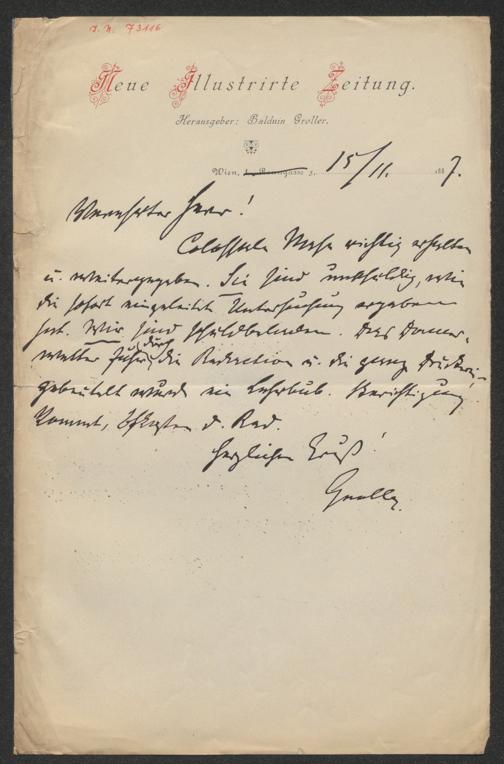 J. N. 73116
Neue Illustrirte Zeitung.
Herausgeber: Balduin Groller.
Wien, 15/11. 1887.
Verehrter Herr!
Colossale Nase richtig erhalten
u. weitergegeben. Sie sind unschuldig, wie
die sofort eingeleitete Untersuchung ergeben
hat. Wir sind schuldbeladen. Das Donner-
wetter fuhr durch die Redaction u. die ganze Druckerei,
gebeutelt wurde ein Lehrbub. Berichtigung
kommt, d. Red.
Herzlichen Gruß!
Groller